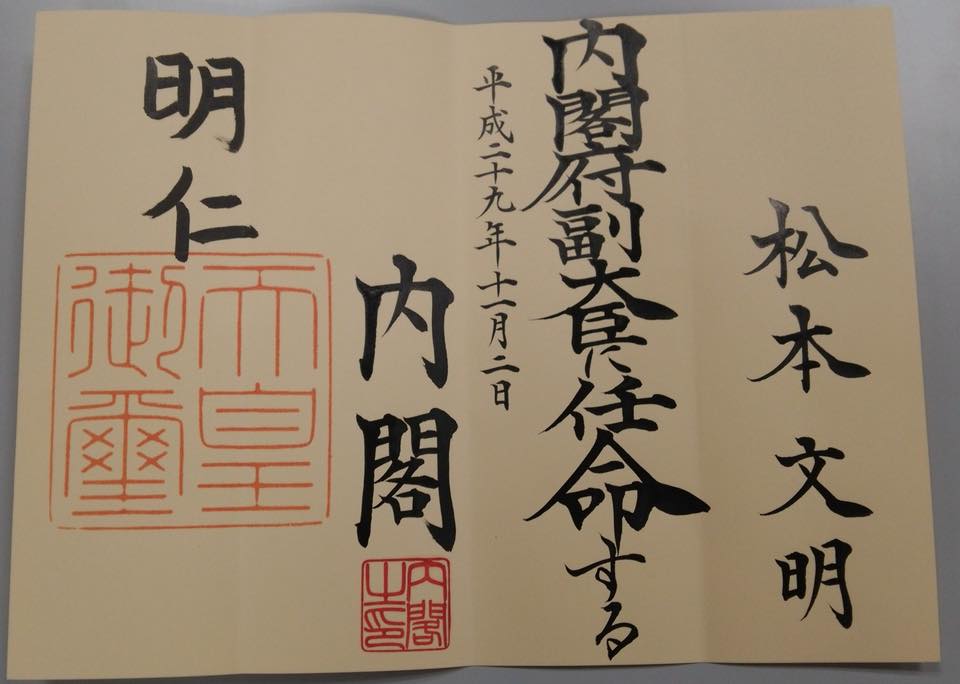 松本文明
内閣府副大臣に任命する
平成二十九年十一月二日
内閣
内閣之印
明仁
天皇御璽